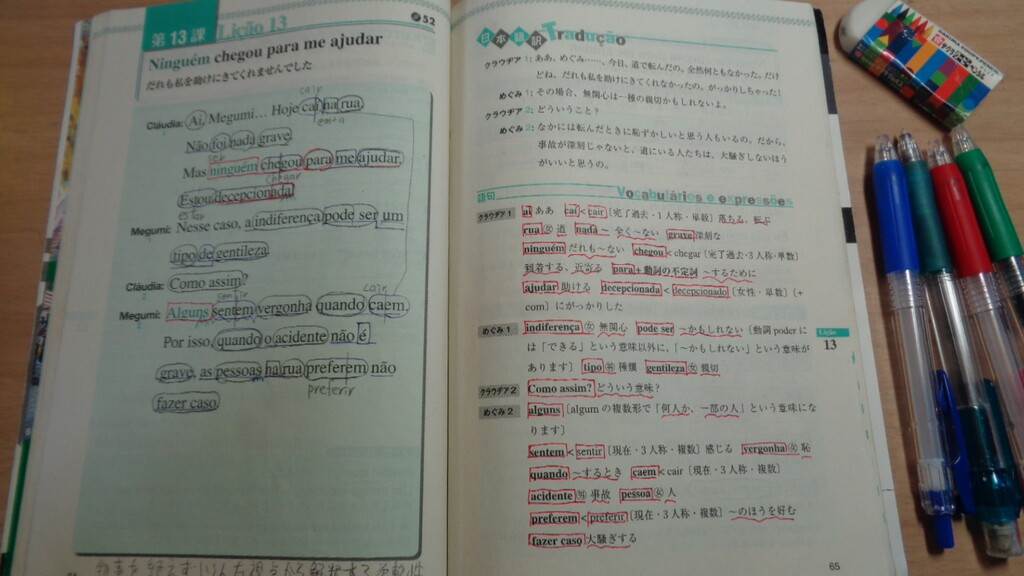 第13課 Lição 13
52
Ninguém chegou para me ajudar
だれも私を助けにきてくれませんでした
cair
Cláudia: Ai, Megumi... Hoje caí na rua.
em+a
Não foi nada grave.
ser
Mas ninguém chegou para me ajudar.
chegar
Estou decepcionada.
estar
Megumi: Nesse caso, a indiferença pode ser um
tipo de gentileza.
Cláudia: Como assim?
2
sentir
cair
Megumi: Alguns sentem vergonha quando caem.
2
Por isso, quando o acidente não é
grave, as pessoas na rua preferem não
preferir
fazer caso.
日本語訳 Tradução
クラウヂア1: ああ、めぐみ……、今日、道で転んだの。全然何ともなかった。だけ
どね、だれも私を助けにきてくれなかったの。がっかりしちゃった!
めぐみ1: その場合、無関心は一種の親切かもしれないよ。
クラウヂア2: どういうこと?
めぐみ2: なかには転んだときに恥ずかしいと思う人もいるの。だから、
事故が深刻じゃないと、道にいる人たちは、大騒ぎしないほう
がいいと思うの。
語句 Vocabulários e expressões
クラウヂア1 ai ああ caí < cair〔完了過去・1人称・単数〕落ちる、転ぶ
rua 女 道 nada ～ 全く～ない grave 深刻な
ninguém だれも～ない chegou < chegar〔完了過去・3人称・単数〕
到着する、近寄る para+動詞の不定詞 ～するために
ajudar 助ける decepcionada < decepcionado〔女性・単数〕[+
com] にがっかりした
めぐみ1 indiferença 女 無関心 pode ser ～かもしれない〔動詞 poder に
は「できる」という意味以外に、「～かもしれない」という意味が
あります〕 tipo 男 種類 gentileza 女 親切
クラウヂア2 Como assim? どういう意味?
めぐみ2 alguns〔algum の複数形で「何人か、一部の人」という意味にな
ります〕
sentem < sentir〔現在・3人称・複数〕感じる vergonha 女 恥
quando ～するとき caem < cair〔現在・3人称・複数〕
acidente 男 事故 pessoa 女 人
preferem < preferir〔現在・3人称・複数〕～のほうを好む
fazer caso 大騒ぎする
Lição
13
65